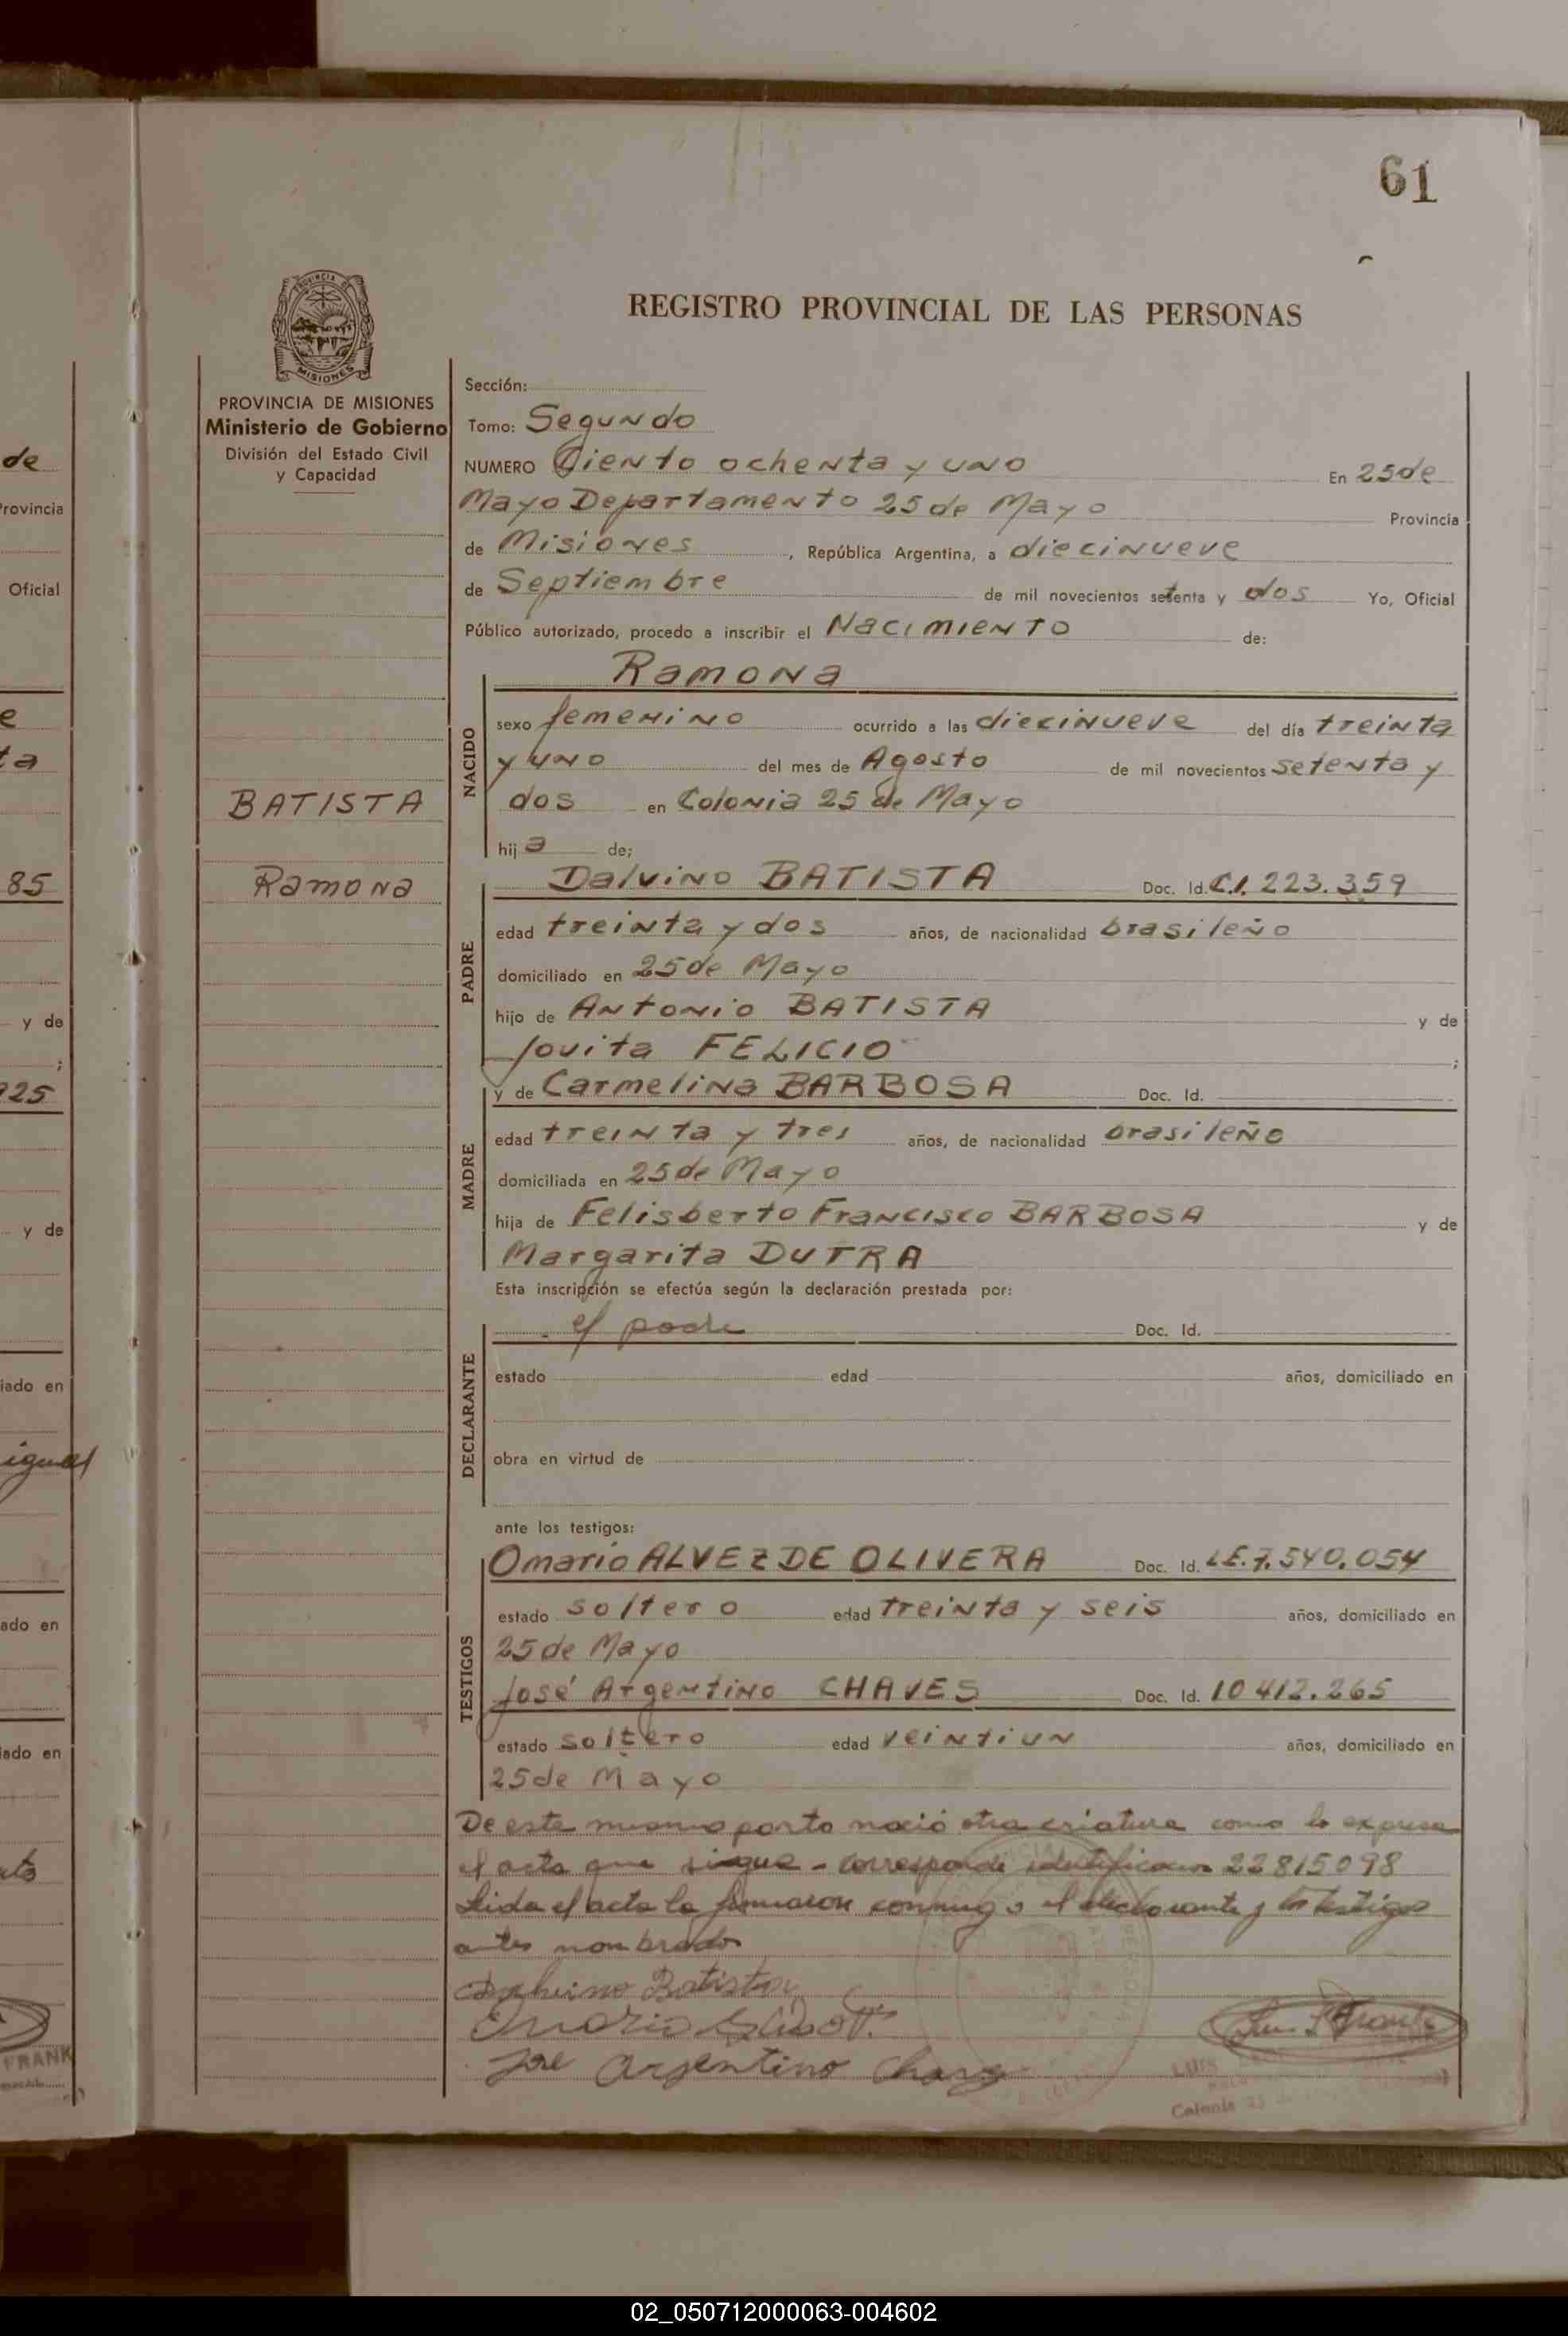 61
REGISTRO PROVINCIAL DE LAS PERSONAS
PROVINCIA DE
MISIONES
PROVINCIA DE MISIONES
Ministerio de Gobierno
División del Estado Civil
y Capacidad
BATISTA
Ramona
Sección:
Tomo: Segundo
NUMERO Ciento ochenta y uno En 25 de
Mayo Departamento 25 de Mayo Provincia
de Misiones, República Argentina, a diecinueve
de Septiembre de mil novecientos setenta y dos Yo, Oficial
Público autorizado, procedo a inscribir el Nacimiento de:
Ramona
NACIDO
sexo femenino ocurrido a las diecinueve del día treinta
y uno del mes de Agosto de mil novecientos setenta y
dos en Colonia 25 de Mayo
hija de;
Dalvino BATISTA Doc. Id. C.I. 223.359
PADRE
edad treinta y dos años, de nacionalidad brasileño
domiciliado en 25 de Mayo
hijo de Antonio BATISTA y de
Jovita FELICIO ;
y de Carmelina BARBOSA Doc. Id.
MADRE
edad treinta y tres años, de nacionalidad brasileño
domiciliada en 25 de Mayo
hija de Felisberto Francisco BARBOSA y de
Margarita DUTRA
Esta inscripción se efectúa según la declaración prestada por:
el padre Doc. Id.
DECLARANTE
estado edad años, domiciliado en
obra en virtud de
ante los testigos:
Omario ALVEZ DE OLIVERA Doc. Id. L.E. 7.540.054
TESTIGOS
estado soltero edad treinta y seis años, domiciliado en
25 de Mayo
José Argentino CHAVES Doc. Id. 10 412.265
estado soltero edad veintiun años, domiciliado en
25 de Mayo
De este mismo parto nació otra criatura como lo expresa
el acta que sigue - corresponde identificacion 22815098
Leida el acta la firmaron conmigo el declarante y los testigos
antes nombrados
Dalvino Batista
Omario
José Argentino Chaves
Colonia 25
de
Provincia
Oficial
e
ta
85
y de
;
925
y de
iado en
igual
ado en
iado en
FRANK
02_050712000063-004602